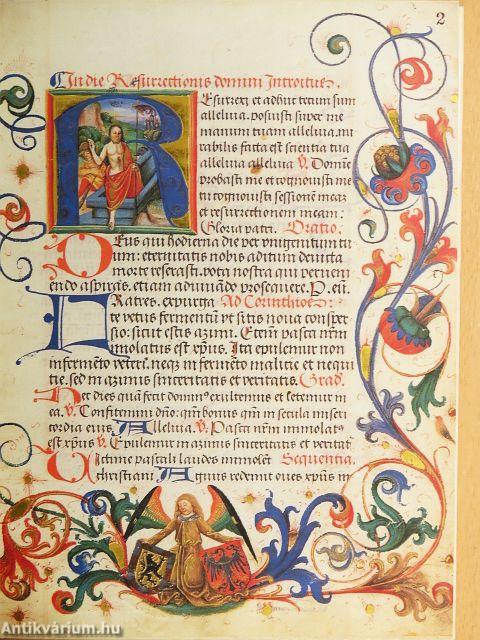 2
In die Resurrectionis domini Introitus.
Resurrexi et adhuc tecum sum
alleluia. posuisti super me
manum tuam alleluia. mi
rabilis facta est scientia tua
alleluia alleluia V. Domine
probasti me et cognouisti me
tu cognouisti sessionem meam
et resurrectionem meam:
Gloria patri. Oratio.
DEus qui hodierna die per vnigenitum tu
um: eternitatis nobis aditum deuicta
morte reserasti. vota nostra que perueni
endo aspiras. etiam adiuuando prosequere. P. eun.
FRatres. expurga Ad Corinthios:
te vetus fermentum vt sitis noua consper
sio: sicut estis azimi. Etenim pasca nrm
immolatus est xpus. Ita epulemur non
in fermento veteri. neqz in fermento malitie et neqi
tie. sed in azimis sinceritatis et veritatis. Grad.
Hec dies quam fecit domin9 exultemus et letemur in
ea. V. Confitemini dno: qm bonus qm in secula miseri
cordia eius. Alleluia. V. Pasca nrm immolat9
est xpus V. Epulemur in azimis sinceritatis et veritatis
Victime pascali laudes immolent Sequentia.
christiani. Agnus redemit oues xpus in
Antikvárium.hu